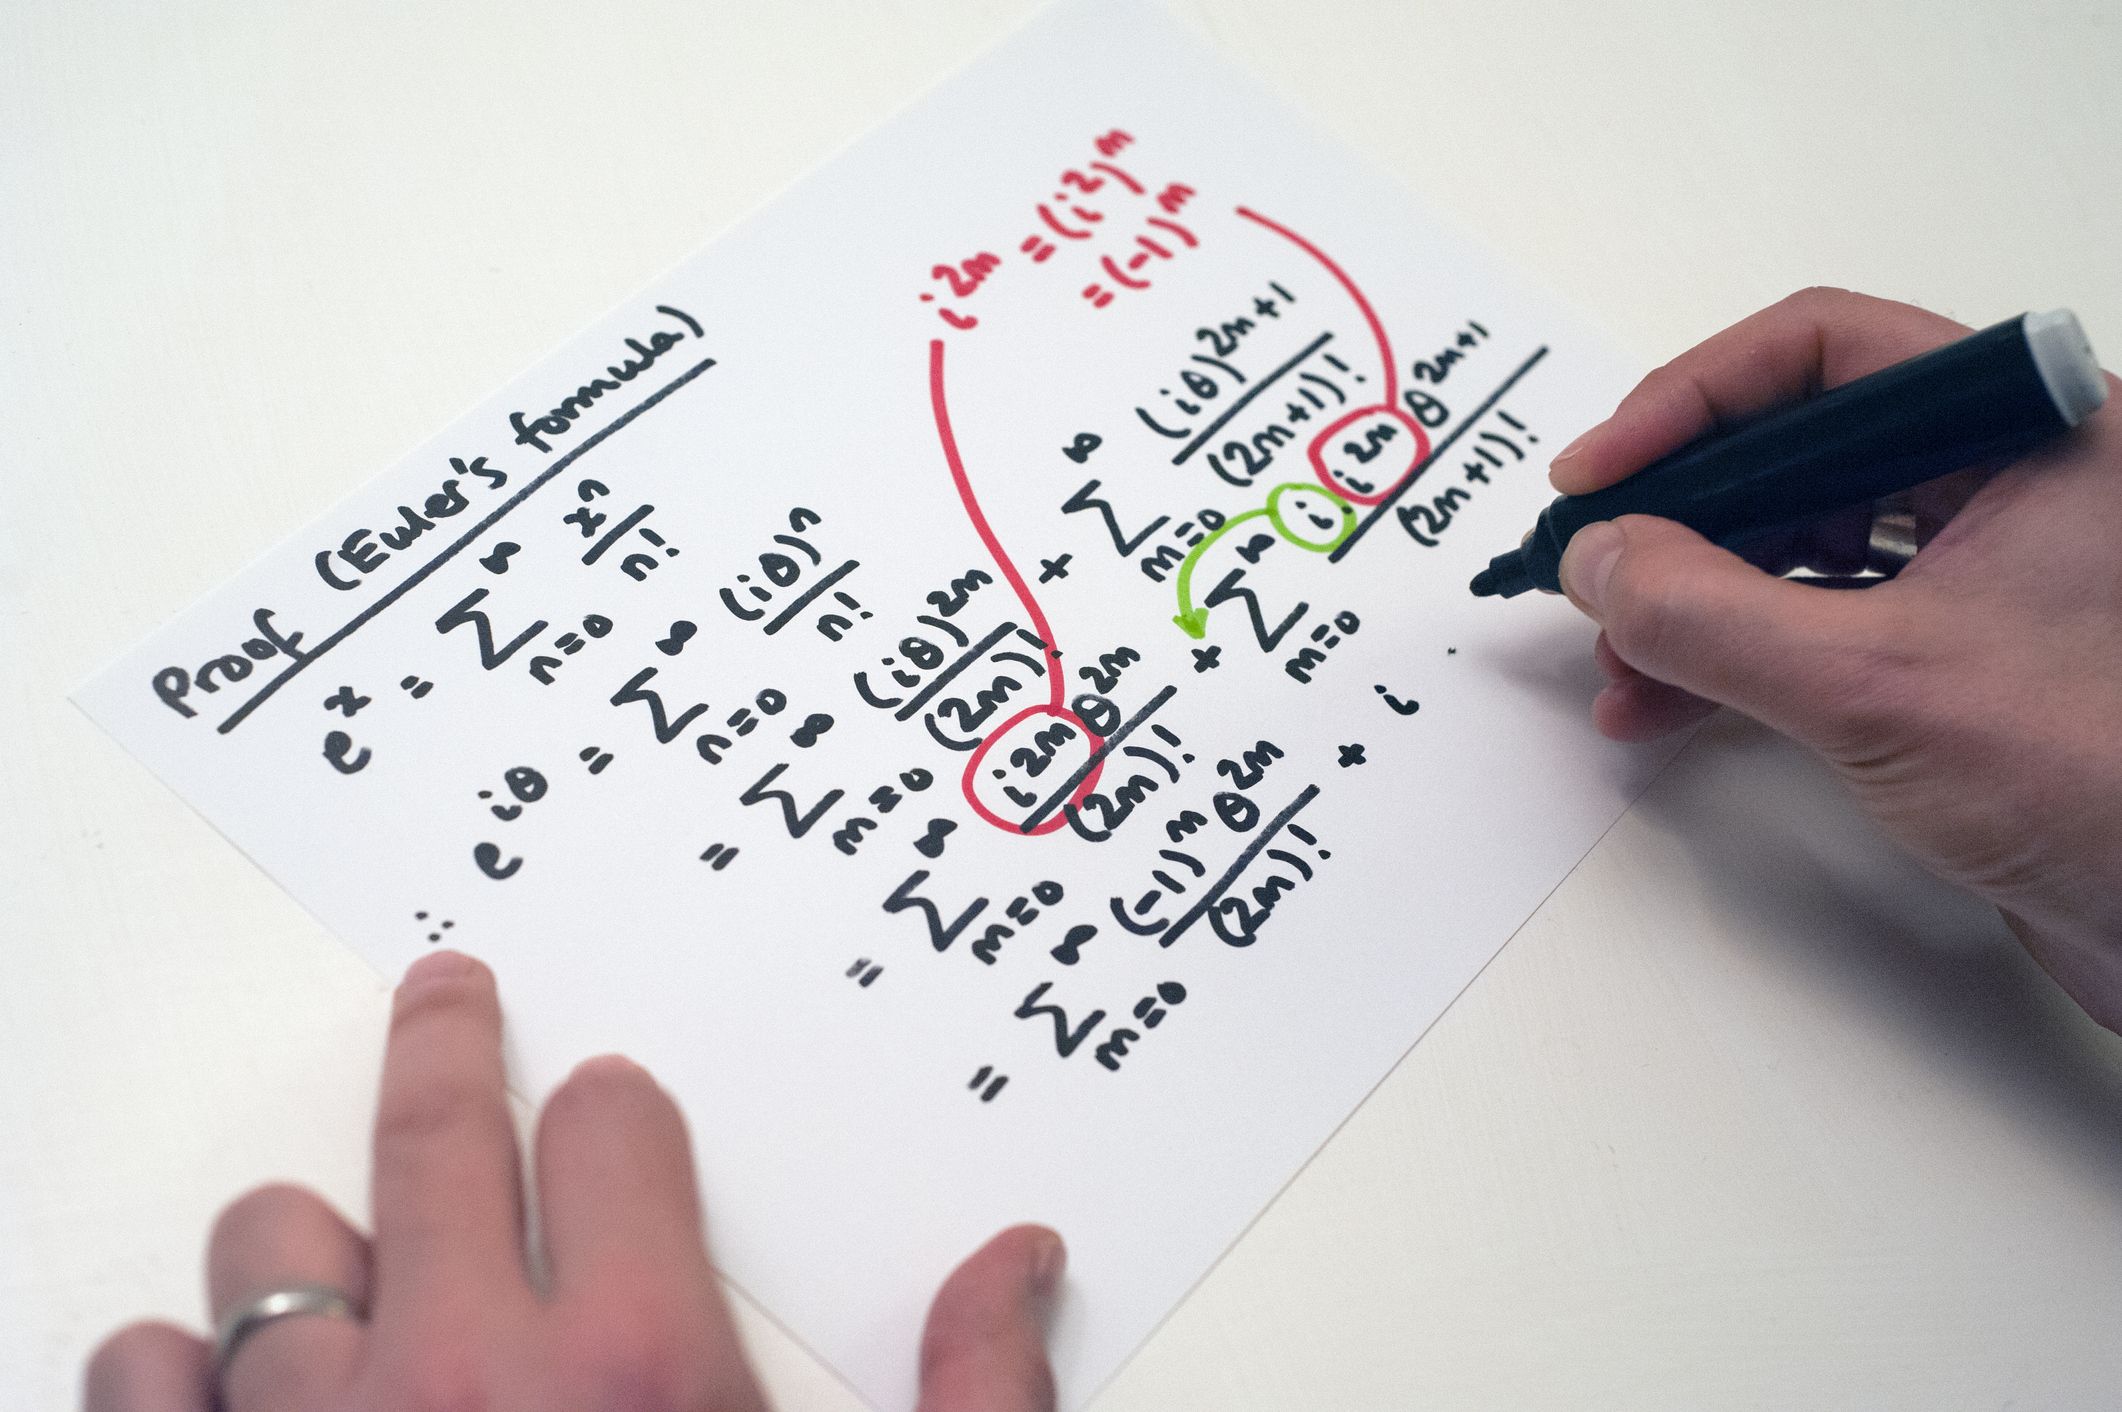 Proof (Euler's formula)
e^x = ∑_{n=0}^{∞} x^n/n!
∴ e^{iθ} = ∑_{n=0}^{∞} (iθ)^n/n!
= ∑_{m=0}^{∞} (iθ)^{2m}/(2m)! + ∑_{m=0}^{∞} (iθ)^{2m+1}/(2m+1)!
i^{2m} = (i^2)^m
= (-1)^m
= ∑_{m=0}^{∞} i^{2m} θ^{2m}/(2m)! + ∑_{m=0}^{∞} i · i^{2m} θ^{2m+1}/(2m+1)!
= ∑_{m=0}^{∞} (-1)^m θ^{2m}/(2m)! + i